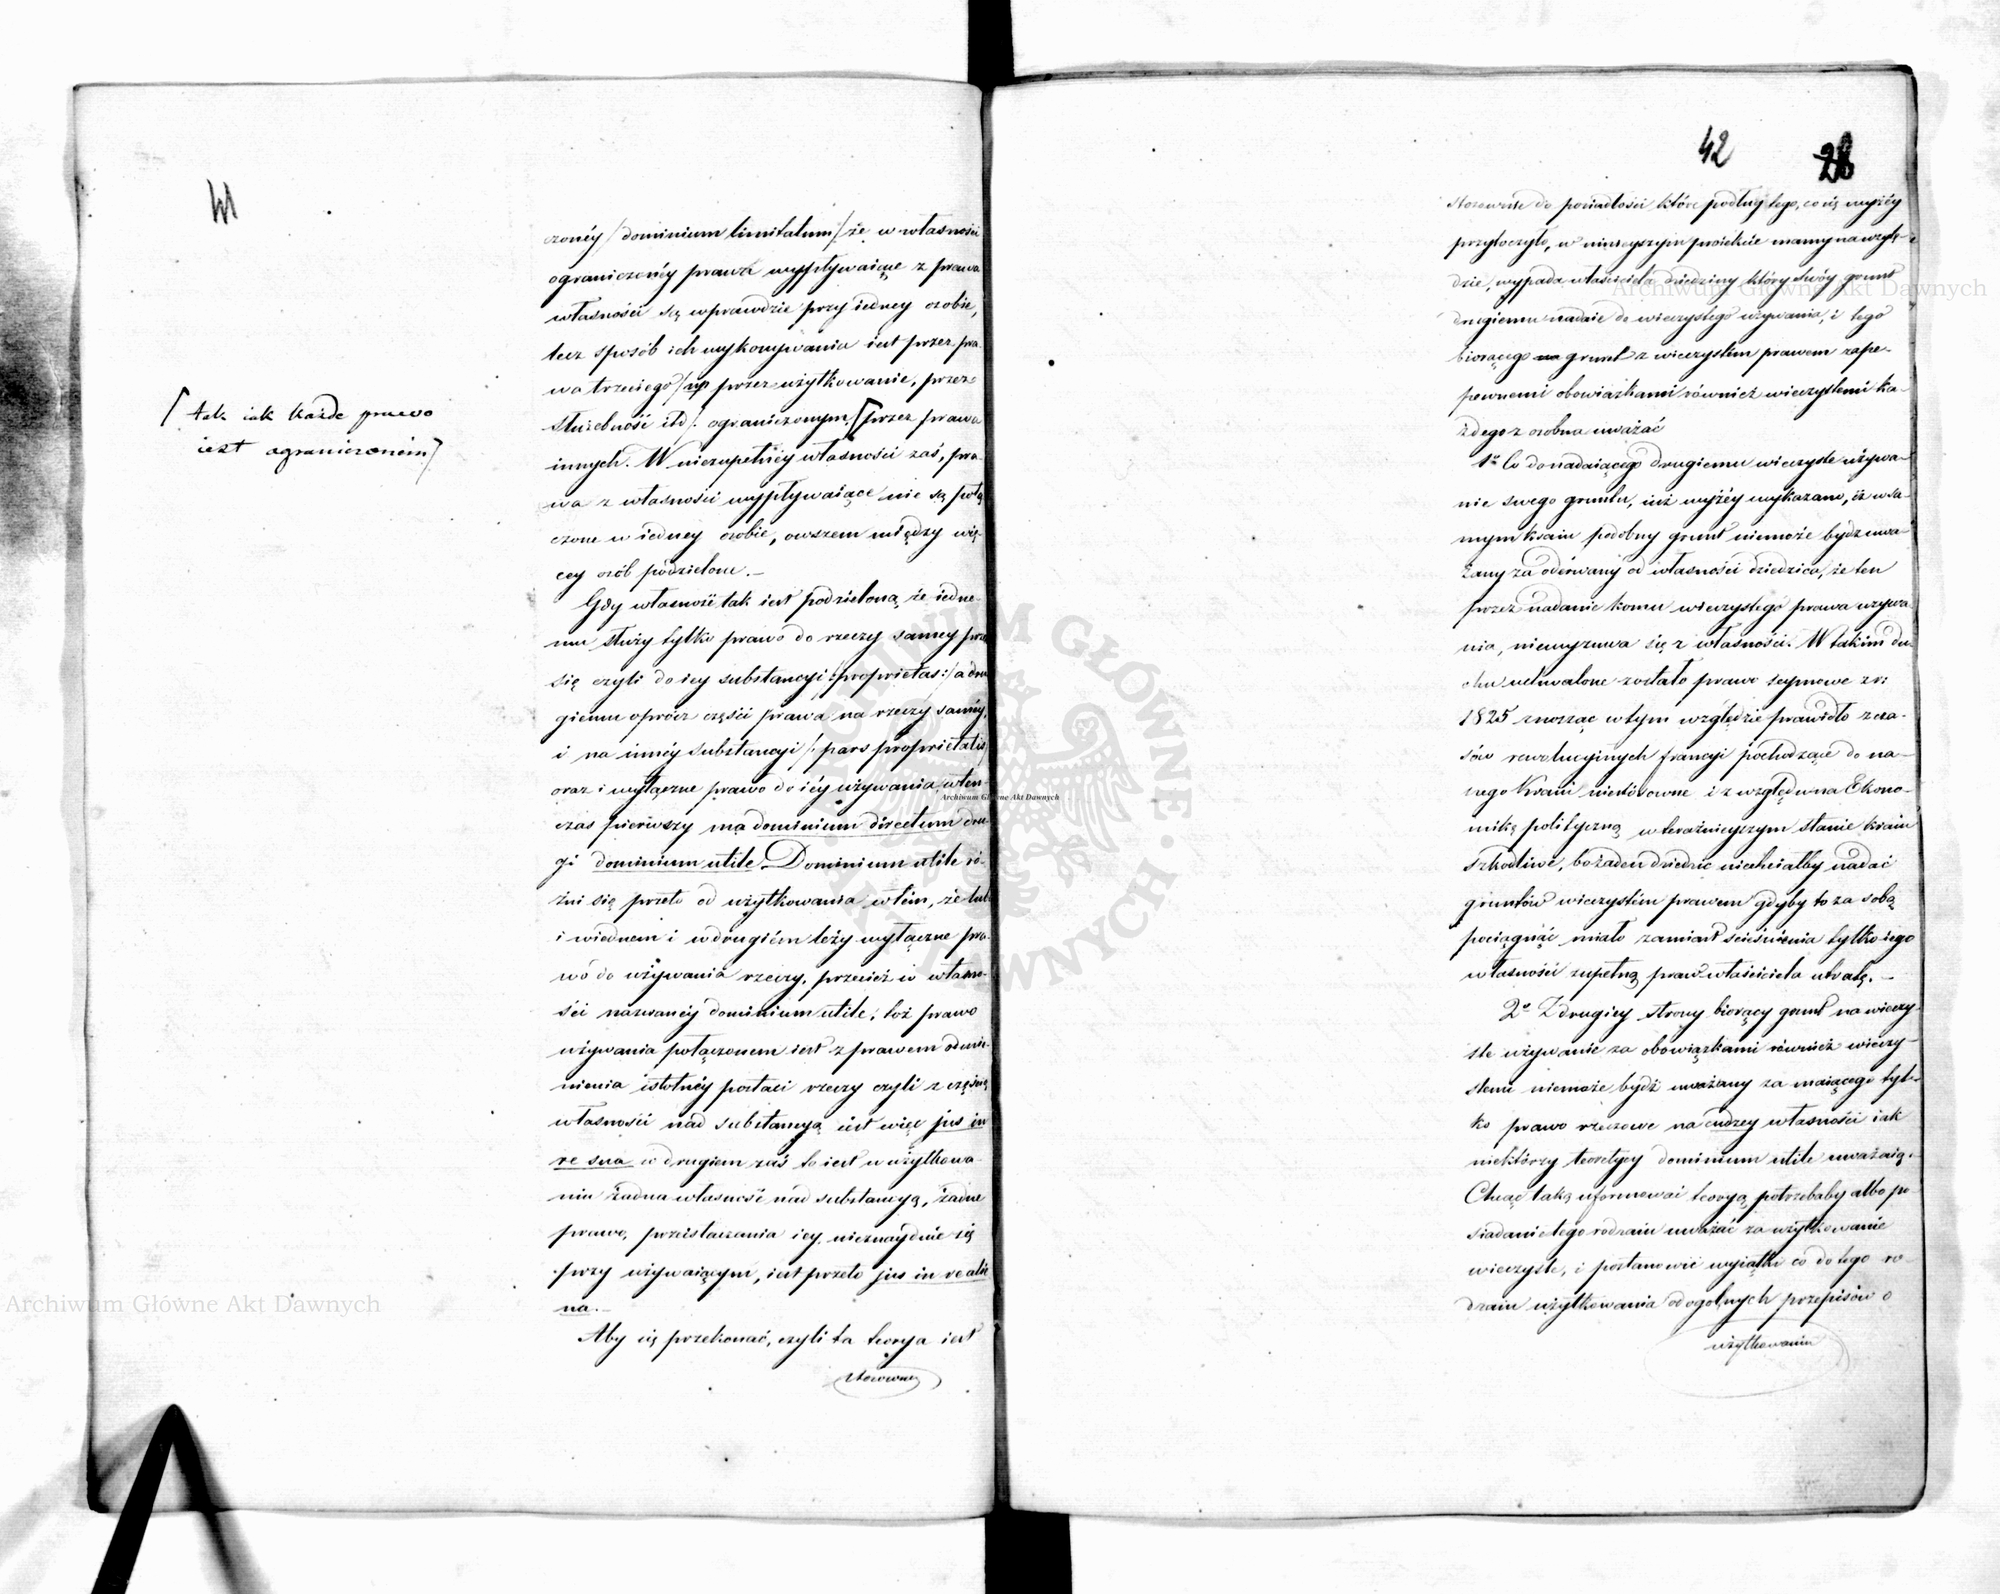 41
czonéy /dominium limitatum/ że w własności
ograniczonéy prawa wypływaiące z prawa
własności są wprawdzie przy iedney osobie,
lecz sposób ich wykonywania iest przez pra-
wa trzeciego /np przez użytkowanie, przez
służebność itd/. ograniczonym [przez prawa
[tak iak każde prawo
iest ograniczonem]
innych. W niezupełnéy własności zaś, pra-
wa z własności wypływaiące nie są połą
czone w iedney osobie, owszem między wię-
cey osób podzielone.—
Gdy własność tak iest podzieloną, że iedne-
mu służy tylko prawo do rzeczy samey przez
się czyli do iey substancyi /:proprietas:/ a dru
giemu oprócz części prawa na rzeczy saméy,
i na innéy substancyi /: pars proprietatis/
oraz i wyłączne prawo do iéy używania, wten-
czas pierwszy ma dominium directum dru-
gi dominium utile. Dominium utile ró-
żni się przeto od użytkowania w tém, że lubo
i w iednem i w drugiém leży wyłączne pra-
wo do używania rzeczy, przecież w własno-
ści nazwanéy dominium utile, toż prawo
używania połączonem iest z prawem odmie-
nienia istotnéy postaci rzeczy czyli z częścią
własności nad substancyą iest więc jus in
re sua w drugiem zaś to iest w użytkowa-
niu żadna własność nad substancyą, żadne
prawo, przeistaczania iey nieznayduie się
przy używaiącym, iest przeto jus in re alie
na.—
Aby się przekonać, czyli ta teorya iest
stosowna
42 28
stosowna do posiadłości które podług tego, co się wyżéy
przytoczyło, w ninieyszym proiekcie mamy na wzglę-
dzie, wypada właściciela dziedziny który swóy grunt
drugiemu nadaie do wieczystego używania, i tego
biorącego na grunt z wieczystém prawem zape-
pewnemi obowiązkami również wieczystemi ka-
żdego z osobna uważać
1º Co do nadaiącego drugiemu wieczyste używa-
nie swego gruntu, iuż wyżéy wykazano, iż w sa-
mym kraiu podobny grunt niemoże bydź uwa-
żany za oderwany od własności dziedzica, że ten
przez nadanie komu wieczystego prawa używa
nia, niewyzuwa się z własności. W takim du-
chu uchwalone zostało prawo seymowe z r:
1825 znosząc w tym względzie prawidło z cza-
sów rewolucyinych francyi pochodzące do na-
szego kraiu niestosowne i z względu na Ekono-
mikę polityczną w teraźnieyszym stanie kraiu
szkodliwe, bo żaden dziedzic niechciałby nadać
gruntów wieczystém prawem gdyby to za sobą
pociągnąć miało zamiast ścieśnienia tylko iego
własności zupełną praw właściciela utratę.—
2º Z drugiey strony biorący grunt na wieczy-
ste używanie za obowiązkami również wieczy-
stemi niemoże bydź uważany za maiącego tyl-
ko prawo rzeczowe na cudzey własności iak
niektórzy teoretycy dominium utile uważaią.
Chcąc taką uformować teoryą potrzebaby albo po-
siadanie tego rodzaiu uważać za użytkowanie
wieczyste, i postanowić wyiątki co do tego ro-
dzaiu użytkowania od ogólnych przepisów o
użytkowaniu
Archiwum Główne Akt Dawnych
Archiwum Główne Akt Dawnych
Archiwum Główne Akt Dawnych
ARCHIWUM GŁÓWNE AKT DAWNYCH